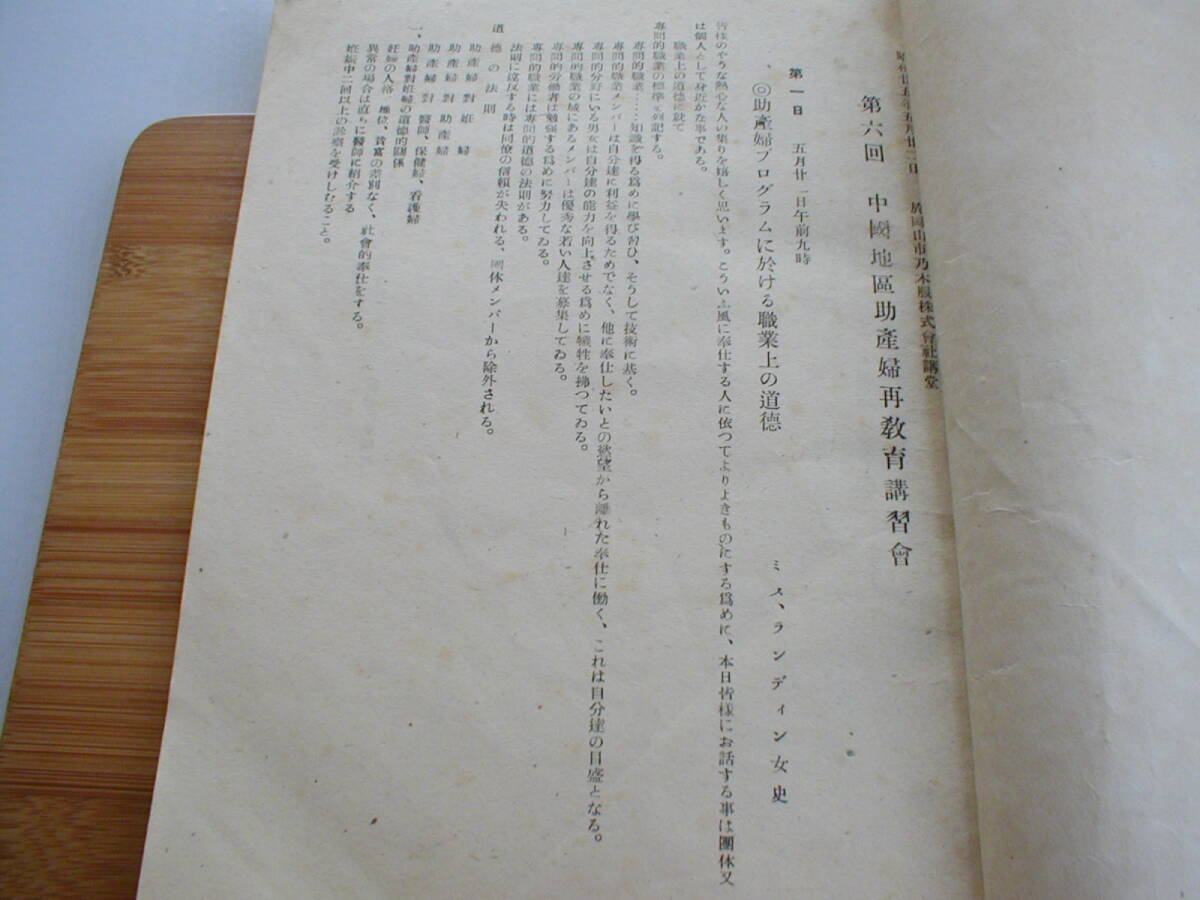 昭和廿五年五月廿二日 於岡山市乃木服株式會社講堂
第六回 中國地區助產婦再敎育講習會
第一日 五月廿二日午前九時
◎助產婦プログラムに於ける職業上の道德
ミス、ランディン女史
皆樣のやうな熱心な人の集りを嬉しく思います。こういふ風に奉仕する人に依つてよりよきものにする爲めに、本日皆樣にお話する事は團体又
は個人として身近かな事である。
職業上の道德に就て
専門的職業の標準を列記する。
専門的職業……知識を得る爲めに學び習ひ、そうして技術に基く。
専門的職業メンバーは自分達に利益を得るためでなく、他に奉仕したいとの慾望から離れた奉仕に働く、これは自分達の目盛となる。
専門的分野にいる男女は自分達の能力を向上させる爲めに犠牲を拂つてゐる。
専門的職業の域にあるメンバーは優秀な若い人達を募集してゐる。
専門的労働者は勉強する爲めに努力してゐる。
専門的職業には専門的道德の法則がある。
法則に違反する時は同僚の信頼が失われる、團休メンバーから除外される。
道德の法則
助產婦對妊婦
助產婦對助產婦
助產婦對醫師、保健婦、看護婦
一、助產婦對妊婦の道德的關係
妊婦の人格 地位、貧富の差別なく、社會的奉仕をする。
異常の場合は直らに醫師に紹介する
妊娠中二回以上の診察を受けしむること。